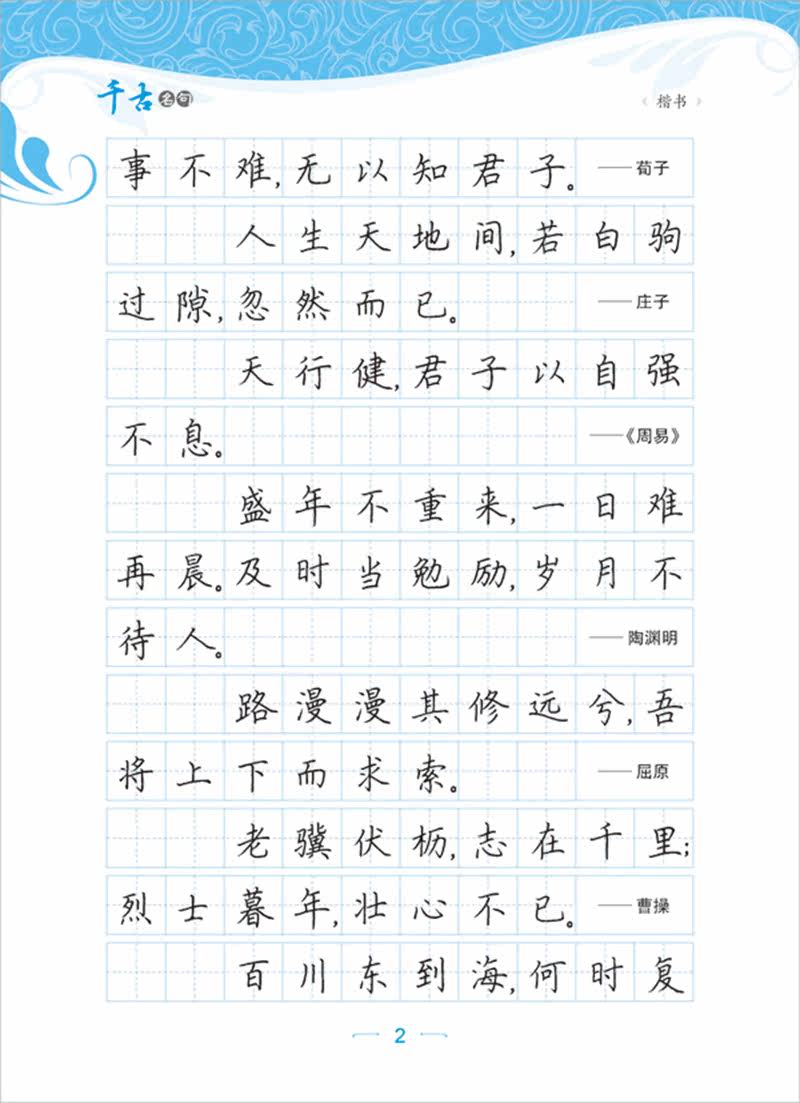 千古名句
楷书
事不难,无以知君子。——荀子
人生天地间,若白驹
过隙,忽然而已。——庄子
天行健,君子以自强
不息。——《周易》
盛年不重来,一日难
再晨。及时当勉励,岁月不
待人。——陶渊明
路漫漫其修远兮,吾
将上下而求索。——屈原
老骥伏枥,志在千里;
烈士暮年,壮心不已。——曹操
百川东到海,何时复
2